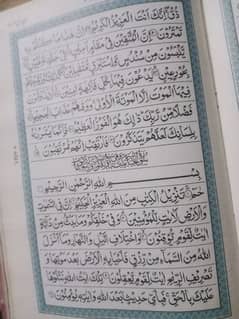 ذُقْ اِنَّكَ اَنْتَ الْعَزِيْزُ الْكَرِيْمُ اِنَّ هٰذَا مَا كُنْتُمْ بِهٖ
تَمْتَرُوْنَ اِنَّ الْمُتَّقِيْنَ فِيْ مَقَامٍ اَمِيْنٍ فِيْ جَنّٰتٍ وَّعُيُوْنٍ
يَّلْبَسُوْنَ مِنْ سُنْدُسٍ وَّاِسْتَبْرَقٍ مُّتَقٰبِلِيْنَ كَذٰلِكَ وَزَوَّجْنٰهُمْ
بِحُوْرٍ عِيْنٍ يَدْعُوْنَ فِيْهَا بِكُلِّ فَاكِهَةٍ اٰمِنِيْنَ لَا يَذُوْقُوْنَ
فِيْهَا الْمَوْتَ اِلَّا الْمَوْتَةَ الْاُوْلٰى وَوَقٰىهُمْ عَذَابَ الْجَحِيْمِ
فَضْلًا مِّنْ رَّبِّكَ ذٰلِكَ هُوَ الْفَوْزُ الْعَظِيْمُ فَاِنَّمَا يَسَّرْنٰهُ
بِلِسَانِكَ لَعَلَّهُمْ يَتَذَكَّرُوْنَ فَارْتَقِبْ اِنَّهُمْ مُّرْتَقِبُوْنَ
بِسْمِ اللّٰهِ الرَّحْمٰنِ الرَّحِيْمِ
حٰمٓ تَنْزِيْلُ الْكِتٰبِ مِنَ اللّٰهِ الْعَزِيْزِ الْحَكِيْمِ اِنَّ فِي السَّمٰوٰتِ
وَالْاَرْضِ لَاٰيٰتٍ لِّلْمُؤْمِنِيْنَ وَفِيْ خَلْقِكُمْ وَمَا يَبُثُّ مِنْ دَآبَّةٍ
اٰيٰتٌ لِّقَوْمٍ يُّوْقِنُوْنَ وَاخْتِلَافِ الَّيْلِ وَالنَّهَارِ وَمَآ اَنْزَلَ
اللّٰهُ مِنَ السَّمَآءِ مِنْ رِّزْقٍ فَاَحْيَا بِهِ الْاَرْضَ بَعْدَ مَوْتِهَا وَ
تَصْرِيْفِ الرِّيٰحِ اٰيٰتٌ لِّقَوْمٍ يَّعْقِلُوْنَ تِلْكَ اٰيٰتُ اللّٰهِ نَتْلُوْهَا
عَلَيْكَ بِالْحَقِّ فَبِاَيِّ حَدِيْثٍ بَعْدَ اللّٰهِ وَاٰيٰتِهٖ يُؤْمِنُوْنَ